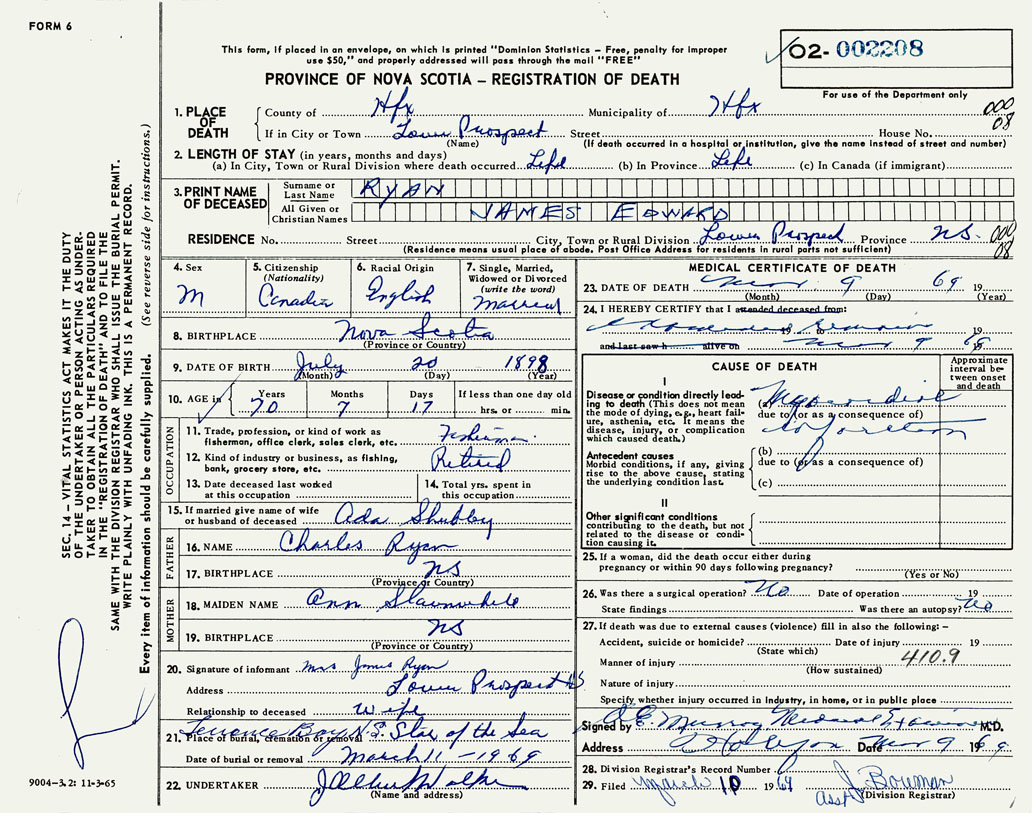 FORM 6
This form, if placed in an envelope, on which is printed "Dominion Statistics – Free, penalty for improper
use $50," and properly addressed will pass through the mail "FREE"
PROVINCE OF NOVA SCOTIA – REGISTRATION OF DEATH
02- 002208
For use of the Department only
SEC. 14 – VITAL STATISTICS ACT MAKES IT THE DUTY
OF THE UNDERTAKER OR PERSON ACTING AS UNDER-
TAKER TO OBTAIN ALL THE PARTICULARS REQUIRED
IN THE "REGISTRATION OF DEATH" AND TO FILE THE
SAME WITH THE DIVISION REGISTRAR WHO SHALL ISSUE THE BURIAL PERMIT.
WRITE PLAINLY WITH UNFADING INK. THIS IS A PERMANENT RECORD.
Every item of information should be carefully supplied. (See reverse side for instructions.)
1. PLACE OF DEATH
County of Hfx Municipality of Hfx
000
08
If in City or Town Lower Prospect Street House No.
(Name) (If death occurred in a hospital or institution, give the name instead of street and number)
2. LENGTH OF STAY (in years, months and days)
(a) In City, Town or Rural Division where death occurred Life (b) In Province Life (c) In Canada (if immigrant)
3. PRINT NAME OF DECEASED
Surname or Last Name RYAN
All Given or Christian Names JAMES EDWARD
RESIDENCE No. Street City, Town or Rural Division Lower Prospect Province NS 000
08
(Residence means usual place of abode. Post Office Address for residents in rural parts not sufficient)
4. Sex
M
5. Citizenship
(Nationality)
Canada
6. Racial Origin
English
7. Single, Married,
Widowed or Divorced
(write the word)
Married
8. BIRTHPLACE Nova Scotia
(Province or Country)
9. DATE OF BIRTH July 20 1898
(Month) (Day) (Year)
10. AGE in Years Months Days If less than one day old
70 7 17 hrs. or min.
OCCUPATION
11. Trade, profession, or kind of work as
fisherman, office clerk, sales clerk, etc. Fisherman
12. Kind of industry or business, as fishing,
bank, grocery store, etc. Retired
13. Date deceased last worked
at this occupation
14. Total yrs. spent in
this occupation
15. If married give name of wife
or husband of deceased Ada
FATHER
16. NAME Charles Ryan
17. BIRTHPLACE NS
(Province or Country)
MOTHER
18. MAIDEN NAME Ann
19. BIRTHPLACE NS
(Province or Country)
20. Signature of informant Mrs James Ryan
Address Lower Prospect NS
Relationship to deceased wife
21. Place of burial, cremation or removal Terrence Bay N.S. Star of the Sea
Date of burial or removal March 11 – 1969
22. UNDERTAKER
(Name and address)
9004-3.2: 11-3-65
MEDICAL CERTIFICATE OF DEATH
23. DATE OF DEATH Mar 9 69 19
(Month) (Day) (Year)
24. I HEREBY CERTIFY that I attended deceased from:
Examined Remains 19 19
and last saw h alive on Mar 9 69 19
CAUSE OF DEATH
Approximate
interval be-
tween onset
and death
I
Disease or condition directly lead-
ing to death (This does not mean
the mode of dying, e.g., heart fail-
ure, asthenia, etc. It means the
disease, injury, or complication
which caused death.)
(a) Myocardial
due to (or as a consequence of)
infarction
Antecedent causes
Morbid conditions, if any, giving
rise to the above cause, stating
the underlying condition last.
(b)
due to (or as a consequence of)
(c)
II
Other significant conditions
contributing to the death, but not
related to the disease or condi-
tion causing it.
25. If a woman, did the death occur either during
pregnancy or within 90 days following pregnancy?
(Yes or No)
26. Was there a surgical operation? No Date of operation 19
State findings Was there an autopsy? No
27. If death was due to external causes (violence) fill in also the following:–
Accident, suicide or homicide? Date of injury 19
(State which)
Manner of injury 410.9
(How sustained)
Nature of injury
Specify whether injury occurred in Industry, in home, or in public place
Signed by Murray Medical Examiner M.D.
Address Halifax Date Mar 9 1969.
28. Division Registrar's Record Number 6
29. Filed March 10 1969 J. Bowman
Asst (Division Registrar)